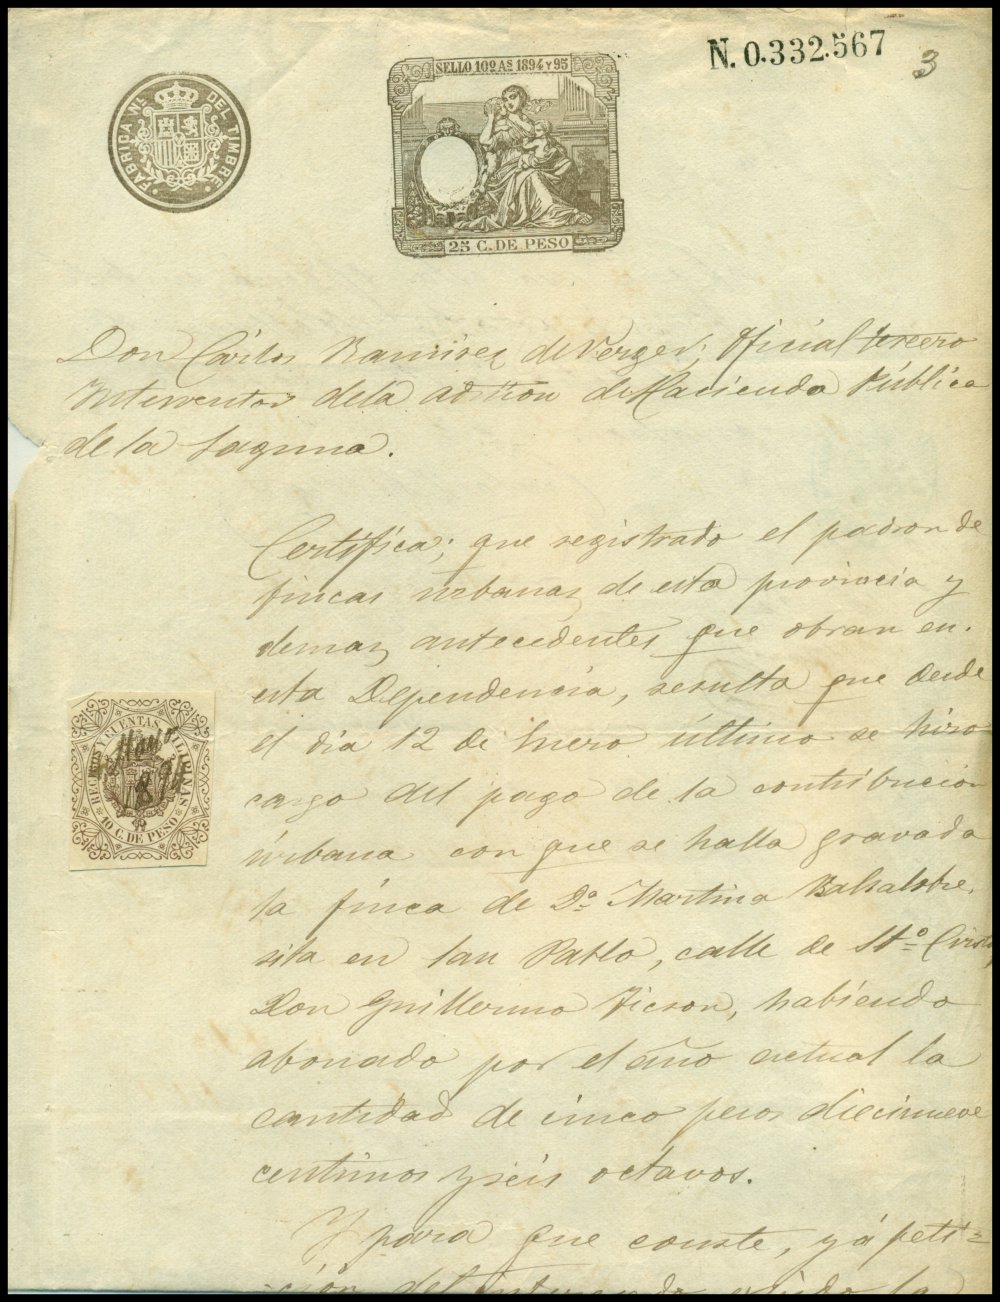 N. 0.332.567
3
FABRICA NL. DEL TIMBRE
SELLO 10º AS 1894 Y 95
25 C. DE PESO
Don Cárlos Ramirez de Verger, Oficial tercero
Interventor dela admon de Hacienda Pública
de la Laguna.
Certifica; que registrado el padron de
fincas urbanas de esta provincia y
demas antecedentes que obran en
esta Dependencia, resulta que desde
el dia 12 de Enero último se hizo
cargo del pago de la contribucion
úrbana con que se halla gravada
la finca de Dª Martina Balsalobre,
sita en San Pablo, calle de Stº Cristo,
Don Guillermo Ticson, habiendo
abonado por el año actual la
cantidad de cinco pesos diecinueve
centimos y seis octavos.
Y para que conste, y á peti-
cion del interesado expido la
RECIBOS Y CUENTAS FILIPINAS
10 C. DE PESO